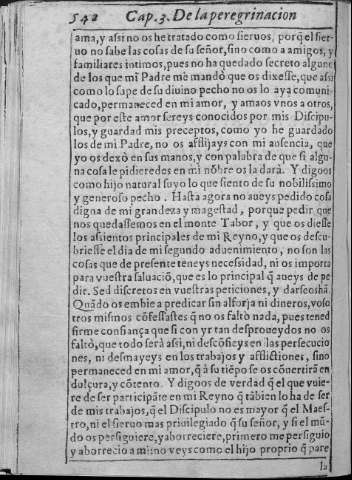 542 Cap. 3. De la peregrinacion
ama, y assi no os he tratado como sieruos, porq̃ el sier-
uo no sabe las cosas de su señor, sino como a amigos, y
familiares intimos, pues no ha quedado secreto alguno
de los que mi Padre me mandò que os dixesse, que assi
como lo supe de su diuino pecho no os lo aya comuni-
cado, permaneced en mi amor, y amaos vnos a otros,
que por este amor sereys conocidos por mis Discipu-
los, y guardad mis preceptos, como yo he guardado
los de mi Padre, no os aflijays con mi ausencia, que
yo os dexo en sus manos, y con palabra de que si algu-
na cosa le pidieredes en mi nõbre os la darà. Y digoos
como hijo natural suyo lo que siento de su nobilissimo
y generoso pecho. Hasta agora no aueys pedido cosa
digna de mi grandeza y magestad, porque pedir que
nos quedassemos en el monte Tabor, y que os diesse
los assientos principales de mi Reyno, y que os descu-
briesse el dia de mi segundo aduenimiento, no son las
cosas que de presente teneys necessidad, ni os importa
para vuestra saluaciõ, que es lo principal q̃ aueys de pe-
dir. Sed discretos en vuestras peticiones, y darseoshà
Quãdo os embie a predicar sin alforja ni dineros, voso
tros mismos cõfessastes q̃ no os faltò nada, pues tened
firme confiança que si con yr tan desproueydos no os
faltò, que todo serà assi, ni descõfieys en las persecucio
nes, ni desmayeys en los trabajos y aflictiones, sino
permaneced en mi amor, q̃ à su tiẽpo se os cõnertirà en
dulçura, y cõtento. Y digoos de verdad q̃ el que vuie-
re de ser participãte en mi Reyno q̃ tãbien lo ha de ser
de mis trabajos, q̃ el Discipulo no es mayor q̃ el Maes-
tro, ni el sieruo mas priuilegiado q̃ su señor, y si el mũ-
do os persiguiere, y aborreciere, primero me persiguio
y aborrecio a mi no veys como el hijo proprio q̃ pare
la